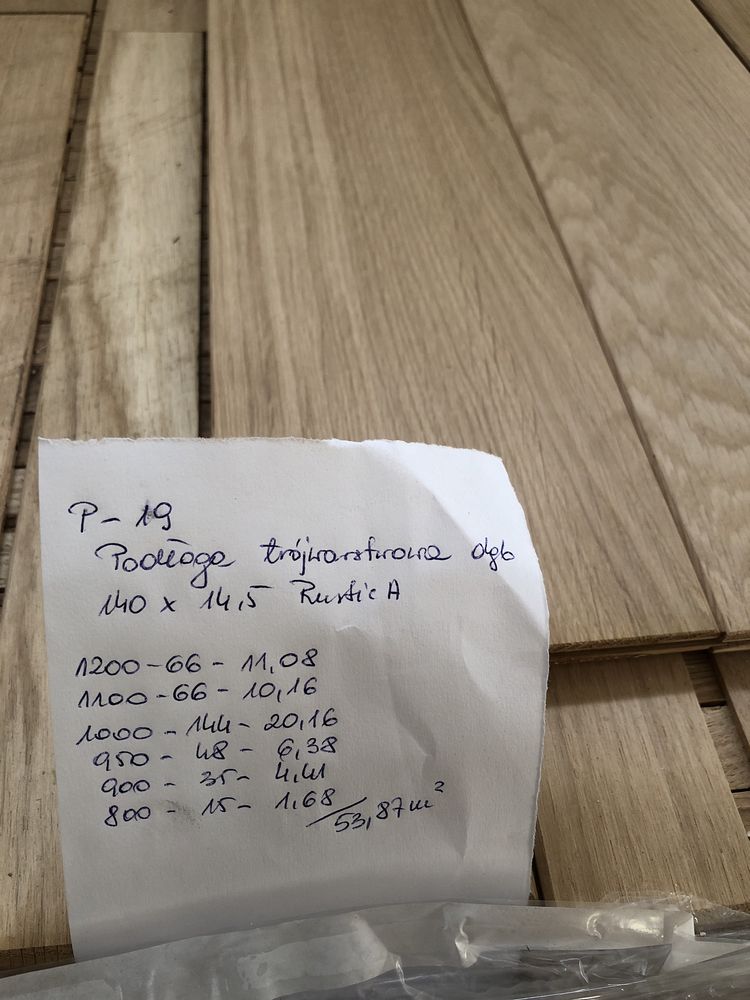 P - 19
Podłoga trójwarstwowa dąb
140 x 14,5 Rustic A
1200 - 66 - 11,08
1100 - 66 - 10,16
1000 - 144 - 20,16
950 - 48 - 6,38
900 - 35 - 4,41
800 - 15 - 1,68
53,87 m²